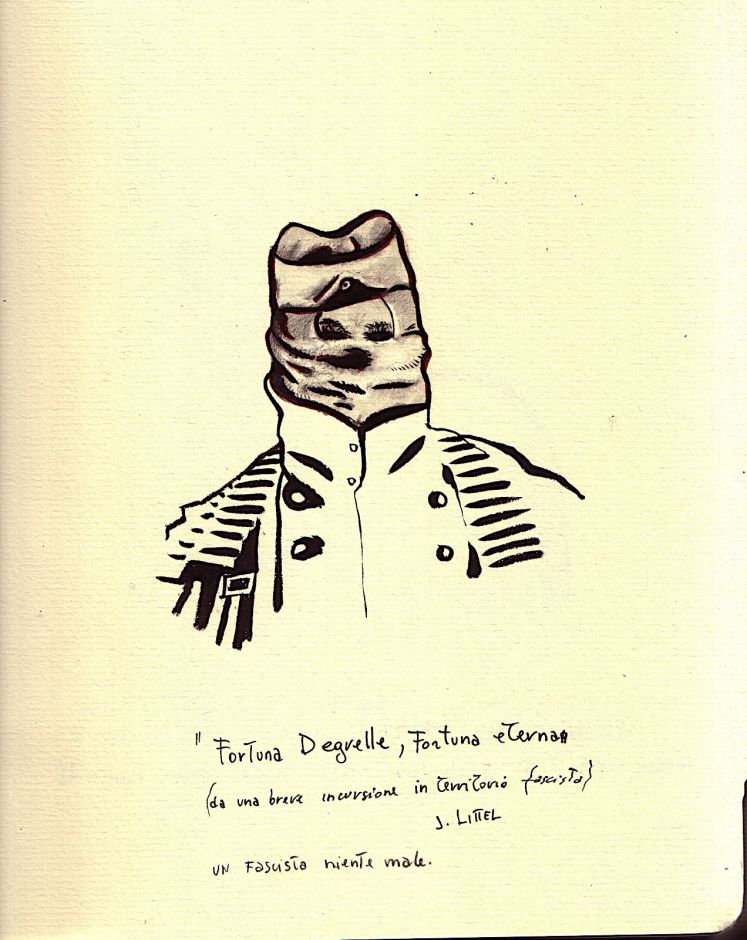 " Fortuna Degrelle, Fortuna eterna"
(da una breve incursione in territorio fascista)
J. LITTEL
UN FASCISTA niente male.